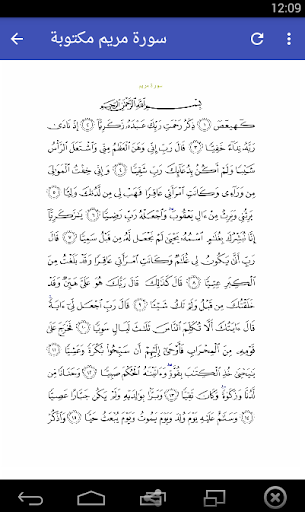 12:09
سورة مريم مكتوبة
سورة مريم
بِسْمِ اللَّهِ الرَّحْمَٰنِ الرَّحِيمِ
كٓهيعٓصٓ ١ ذِكْرُ رَحْمَتِ رَبِّكَ عَبْدَهُۥ زَكَرِيَّآ ٢ إِذْ نَادَىٰ
رَبَّهُۥ نِدَآءً خَفِيًّا ٣ قَالَ رَبِّ إِنِّى وَهَنَ ٱلْعَظْمُ مِنِّى وَٱشْتَعَلَ ٱلرَّأْسُ
شَيْبًا وَلَمْ أَكُنۢ بِدُعَآئِكَ رَبِّ شَقِيًّا ٤ وَإِنِّى خِفْتُ ٱلْمَوَٰلِىَ
مِن وَرَآءِى وَكَانَتِ ٱمْرَأَتِى عَاقِرًا فَهَبْ لِى مِن لَّدُنكَ وَلِيًّا ٥
يَرِثُنِى وَيَرِثُ مِنْ ءَالِ يَعْقُوبَ ۖ وَٱجْعَلْهُ رَبِّ رَضِيًّا ٦ يَٰزَكَرِيَّآ
إِنَّا نُبَشِّرُكَ بِغُلَٰمٍ ٱسْمُهُۥ يَحْيَىٰ لَمْ نَجْعَل لَّهُۥ مِن قَبْلُ سَمِيًّا ٧ قَالَ
رَبِّ أَنَّىٰ يَكُونُ لِى غُلَٰمٌ وَكَانَتِ ٱمْرَأَتِى عَاقِرًا وَقَدْ بَلَغْتُ مِنَ
ٱلْكِبَرِ عِتِيًّا ٨ قَالَ كَذَٰلِكَ قَالَ رَبُّكَ هُوَ عَلَىَّ هَيِّنٌ وَقَدْ
خَلَقْتُكَ مِن قَبْلُ وَلَمْ تَكُ شَيْـًٔا ٩ قَالَ رَبِّ ٱجْعَل لِّىٓ ءَايَةً ۚ
قَالَ ءَايَتُكَ أَلَّا تُكَلِّمَ ٱلنَّاسَ ثَلَٰثَ لَيَالٍ سَوِيًّا ١٠ فَخَرَجَ عَلَىٰ
قَوْمِهِۦ مِنَ ٱلْمِحْرَابِ فَأَوْحَىٰٓ إِلَيْهِمْ أَن سَبِّحُوا۟ بُكْرَةً وَعَشِيًّا ١١
يَٰيَحْيَىٰ خُذِ ٱلْكِتَٰبَ بِقُوَّةٍ ۖ وَءَاتَيْنَٰهُ ٱلْحُكْمَ صَبِيًّا ١٢ وَحَنَانًا مِّن
لَّدُنَّا وَزَكَوٰةً ۖ وَكَانَ تَقِيًّا ١٣ وَبَرًّۢا بِوَٰلِدَيْهِ وَلَمْ يَكُن جَبَّارًا عَصِيًّا
١٤ وَسَلَٰمٌ عَلَيْهِ يَوْمَ وُلِدَ وَيَوْمَ يَمُوتُ وَيَوْمَ يُبْعَثُ حَيًّا ١٥ وَٱذْكُرْ